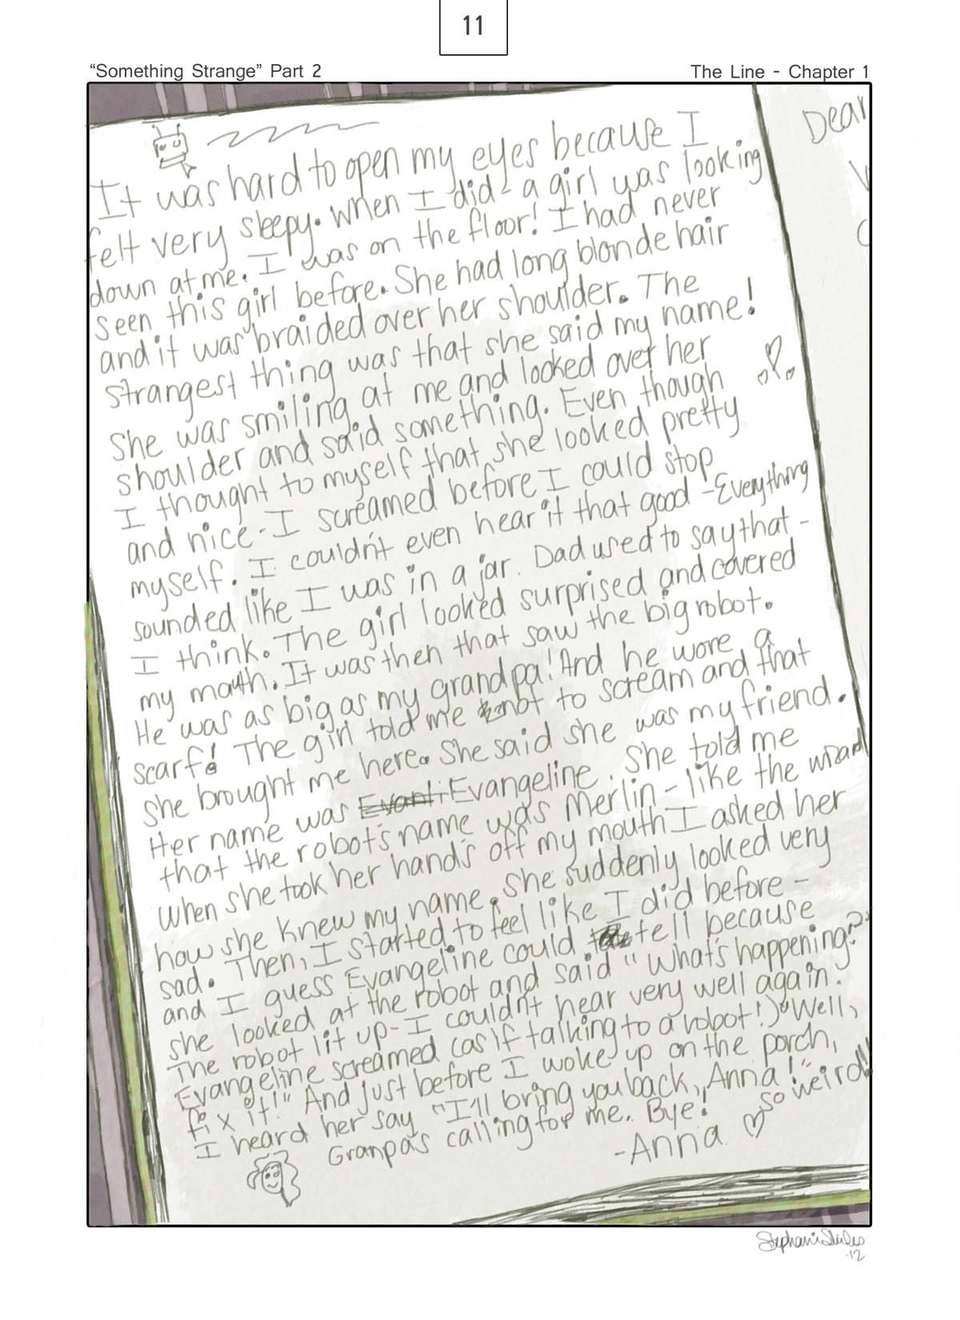 11
“Something Strange” Part 2
The Line - Chapter 1
Dear
It was hard to open my eyes because I
felt very sleepy. When I did - a girl was looking
down at me. I was on the floor! I had never
seen this girl before. She had long blonde hair
and it was braided over her shoulder. The
strangest thing was that she said my name!
She was smiling at me and looked over her
shoulder and said something. Even though
I thought to myself that she looked pretty
and nice - I screamed before I could stop
myself. I couldn't even hear it that good - Everything
sounded like I was in a jar. Dad used to say that -
I think. The girl looked surprised and covered
my mouth. It was then that saw the big robot.
He was as big as my grandpa! And he wore a
scarf! The girl told me not to scream and that
she brought me here. She said she was my friend.
Her name was Evanti Evangeline. She told me
that the robot's name was Merlin - like the man
When she took her hands off my mouth I asked her
how she knew my name. She suddenly looked very
sad. Then, I started to feel like I did before -
and I guess Evangeline could tell because
she looked at the robot and said "What's happening?"
The robot lit up - I couldn't hear very well again.
Evangeline screamed (as if talking to a robot!) "Well,
fix it!" And just before I woke up on the porch,
I heard her say "I'll bring you back, Anna!" so weird!!
Granpa's calling for me. Bye!
-Anna
Stephanie
'12